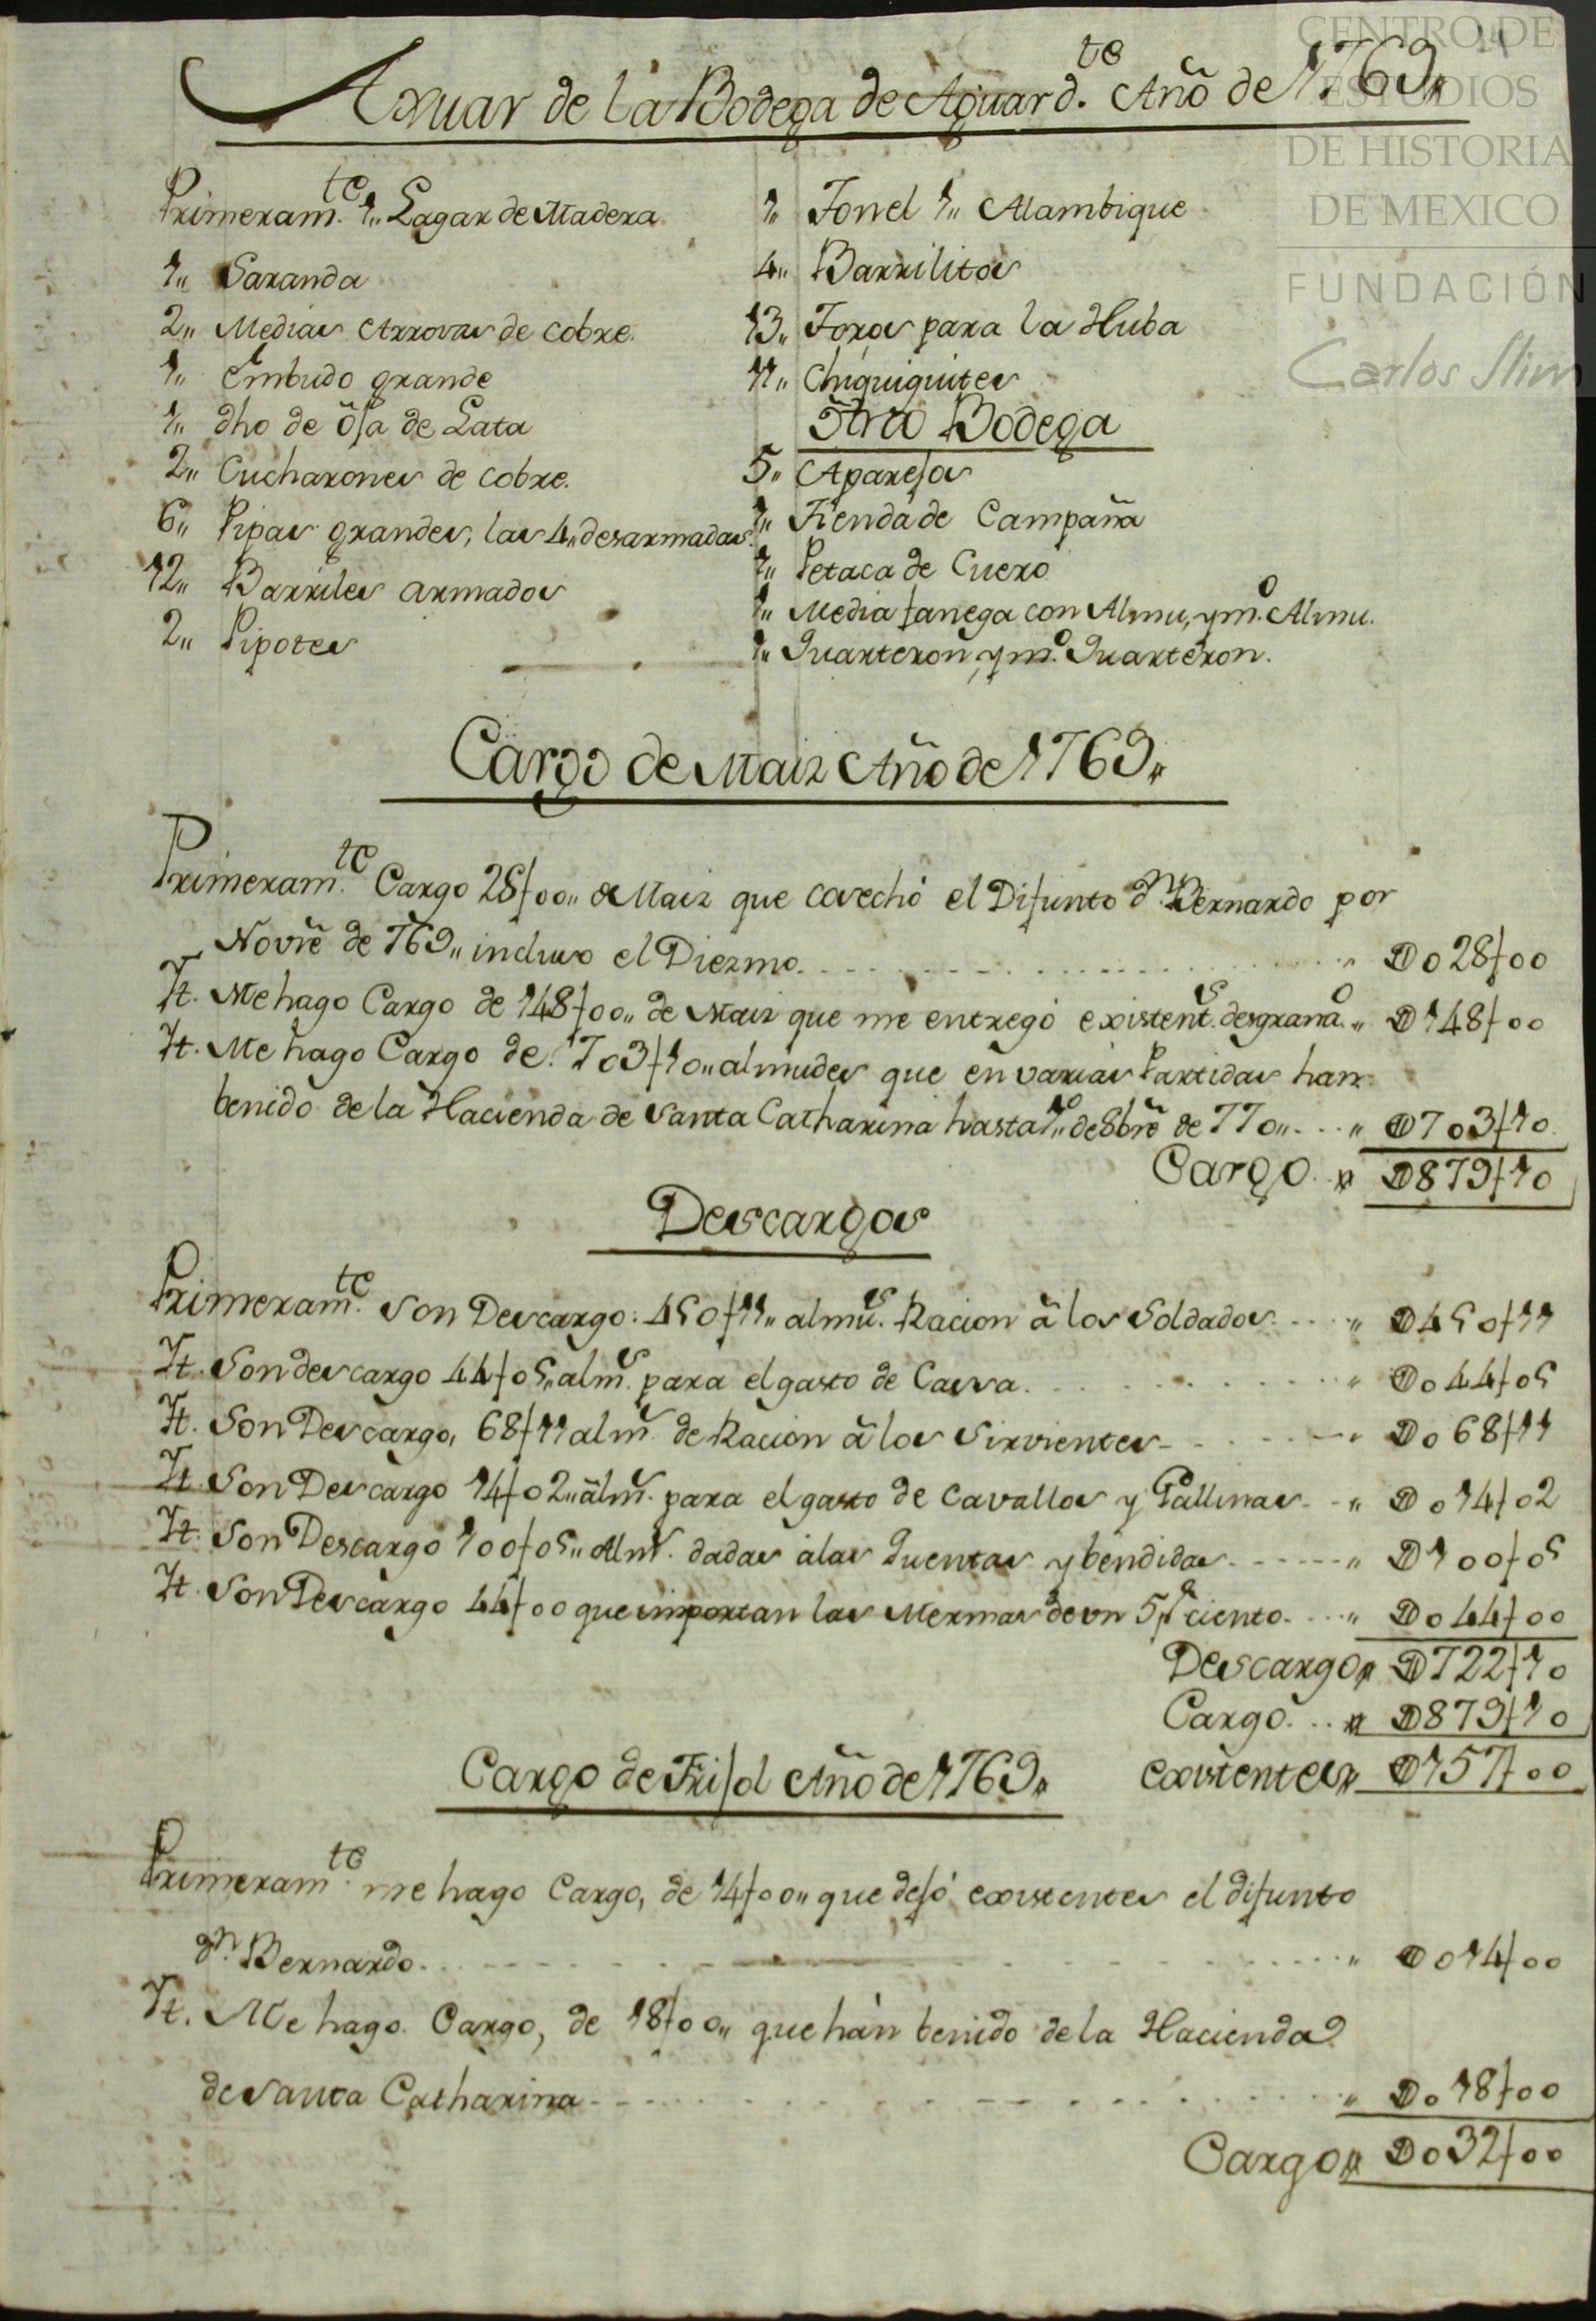 CENTRO DE
ESTUDIOS
DE HISTORIA
DE MEXICO
FUNDACIÓN
Carlos Slim
Axuar de la Bodega de Aguard.te Año de 1769,,
Primeram.te 1,, Lagar de Madera
1,, Saranda
2,, Medias Arrovas de cobre.
1,, Embudo grande
1,, dho de õja de Lata
2,, Cucharones de cobre.
6,, Pipas grandes, las 4,, desarmadas.
12,, Barriles armados
2,, Pipotes
1,, Tonel 1,, Alambique
4,, Barrilitos
13,, Toros para la Huba
11,, Chiquiguites
Otra Bodega
5,, Aparejos
1,, Tienda de Campaña
1,, Petaca de Cuero
1,, Media fanega con Almu, y m.o Almu.
1,, Quarteron, y m.o Quarteron.
Cargo de Maiz Año de 1769,,
Primeram.te Cargo 28f00,, de Maiz que cosechó el Difunto d.n Bernardo por
Novrẽ de 769,, incluso el Diezmo. ,, D028f00
It. Me hago Cargo de 148f00,, de Maiz que me entregó existent.s desgrana.o ,, D148f00
It. Me hago Cargo de. 703f10,, almudes que en varias Partidas han
benido de la Hacienda de Santa Catharina hasta 1.o,, de 8brẽ de 770,, ,, D703f10
Cargo ,, D879f10
Descargos
Primeram.te Son Descargo: 450f11,, almu.s Racion â los Soldados ,, D450f11
It. Son descargo 44f05,, alm.s para el gasto de Cassa. ,, D044f05
It. Son Descargo, 68f11 alm.s de Racion â los Sirvientes ,, D068f11
It. Son Descargo 14f02,, alm.s para el gasto de Cavallos y Gallinas ,, D014f02
It. Son Descargo 100f05,, Alm.s dadas alas Quentas y bendidas ,, D100f05
It. Son Descargo 44f00 que importan las Mermas de vn 5 p.r ciento ,, D044f00
Descargo ,, D722f10
Cargo ,, D879f10
existentes ,, D157f00
Cargo de Frijol Año de 1769,,
Primeram.te me hago Cargo, de 14f00,, que dejó existentes el difunto
d.n Bernardo. ,, D014f00
It. Me hago Cargo, de 18f00,, que hán benido de la Hacienda
de Santa Catharina ,, D018f00
Cargo ,, D032f00